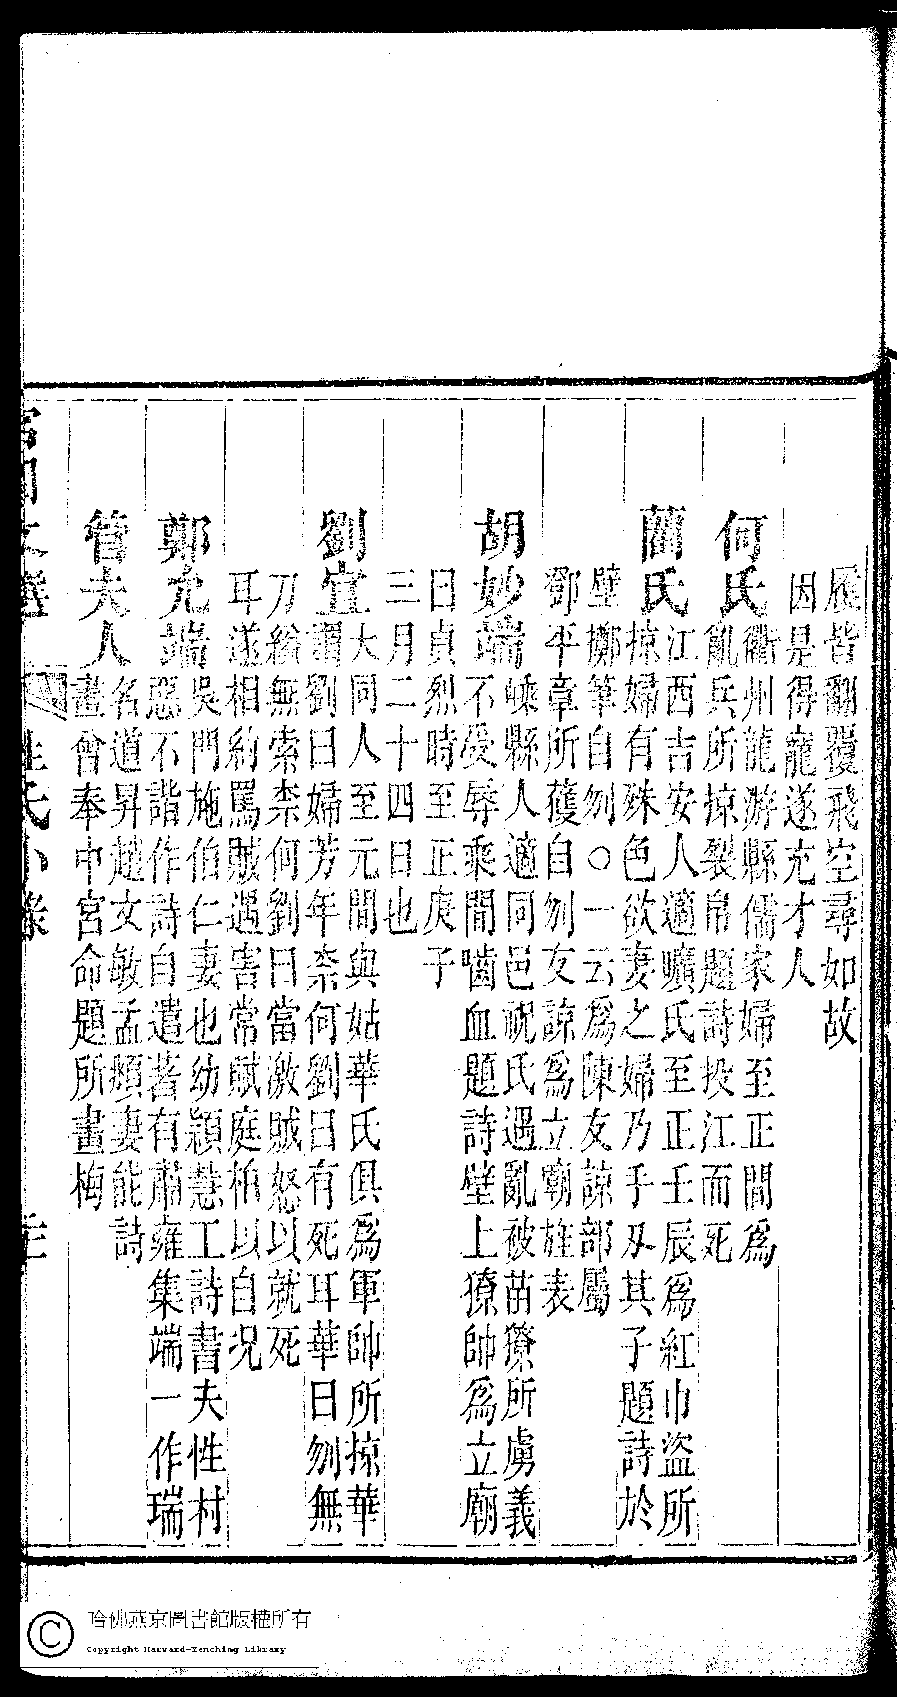 履皆翻覆飛空尋如故
因是得寵遂充才人
何氏
衢州龍游縣儒家婦至正間爲
亂兵所掠裂帛題詩投江而死
藺氏
江西吉安人適曠氏至正壬辰爲紅巾盜所
掠婦有殊色欲妻之婦乃手刄其子題詩於
壁擲筆自刎○一云爲陳友諒部屬
鄧平章所獲自刎友諒爲立廟旌表
胡妙端
嵊縣人適同邑祝氏遇亂被苗獠所虜義
不受辱乘間嚙血題詩壁上獠帥爲立廟
曰貞烈時至正庚子
三月二十四日也
劉宜
大同人至元間與姑華氏俱爲軍帥所掠華
謂劉曰婦芳年柰何劉曰有死耳華曰刎無
刀繳無索柰何劉曰當激賊怒以就死
耳遂相約罵賊遇害常賦庭柏以自况
鄭允端
吳門施伯仁妻也幼穎慧工詩書夫性村
惡不諧作詩自遣著有肅雍集端一作瑞
管夫人
名道昇趙文敏孟頫妻能詩
畫曾奉中宮命題所畫梅
姓氏小錄
哈佛燕京圖書館版權所有
Copyright Harvard-Yenching Library